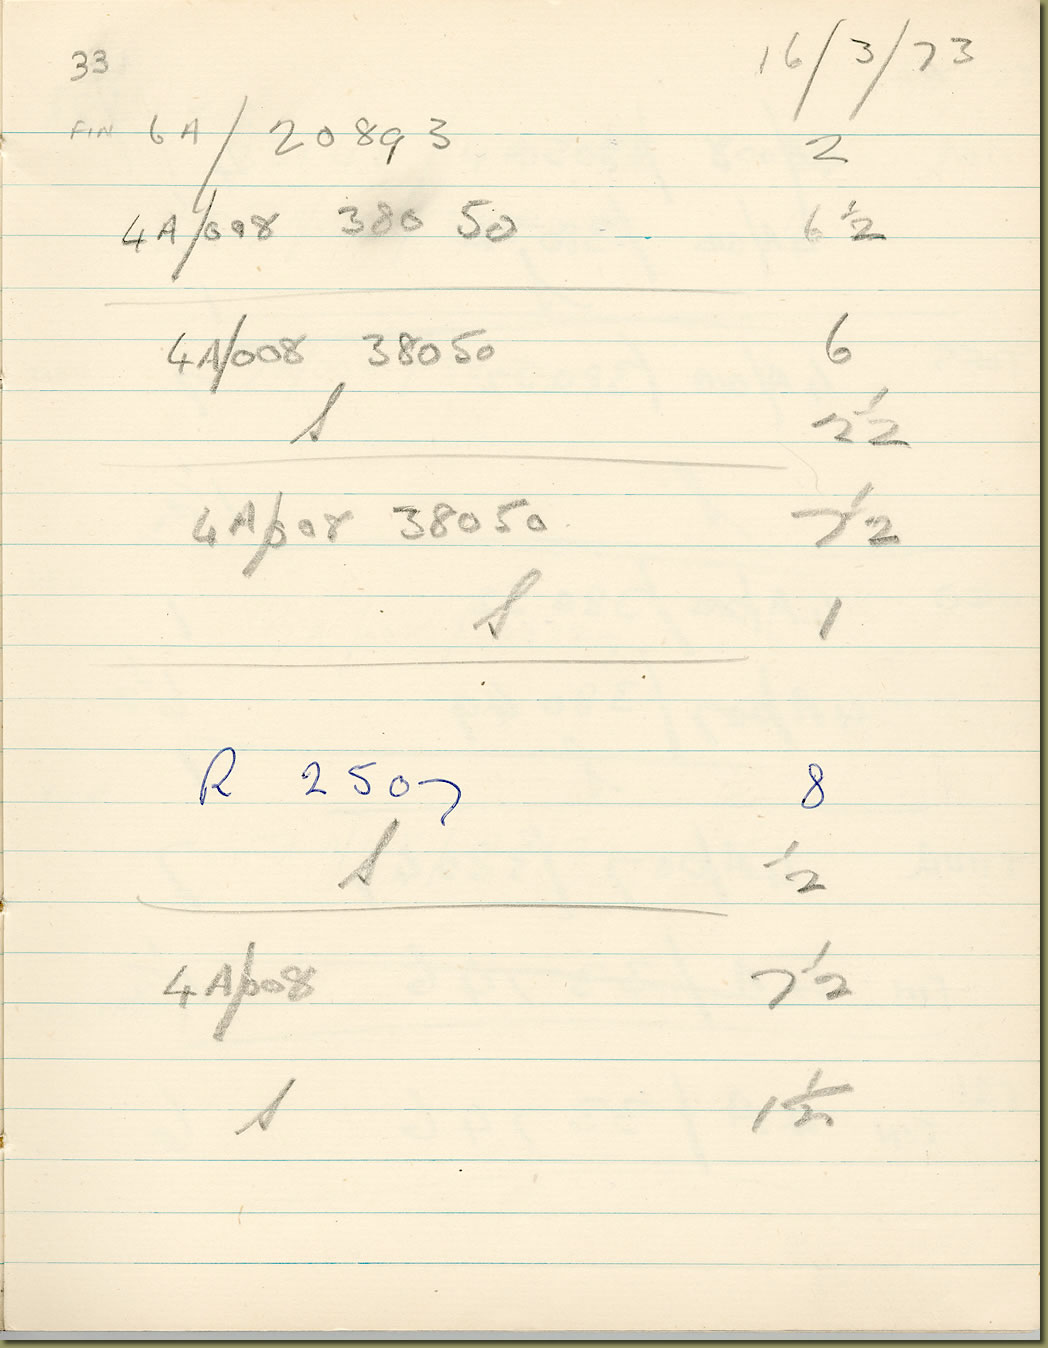 33 16/3/73
FIN 6A/20893 2
4A/008 38050 6 1/2
4A/008 38050 6
S 2 1/2
4A/008 38050 7 1/2
S 1
R 2507 8
S 1/2
4A/008 7 1/2
S 1 1/2